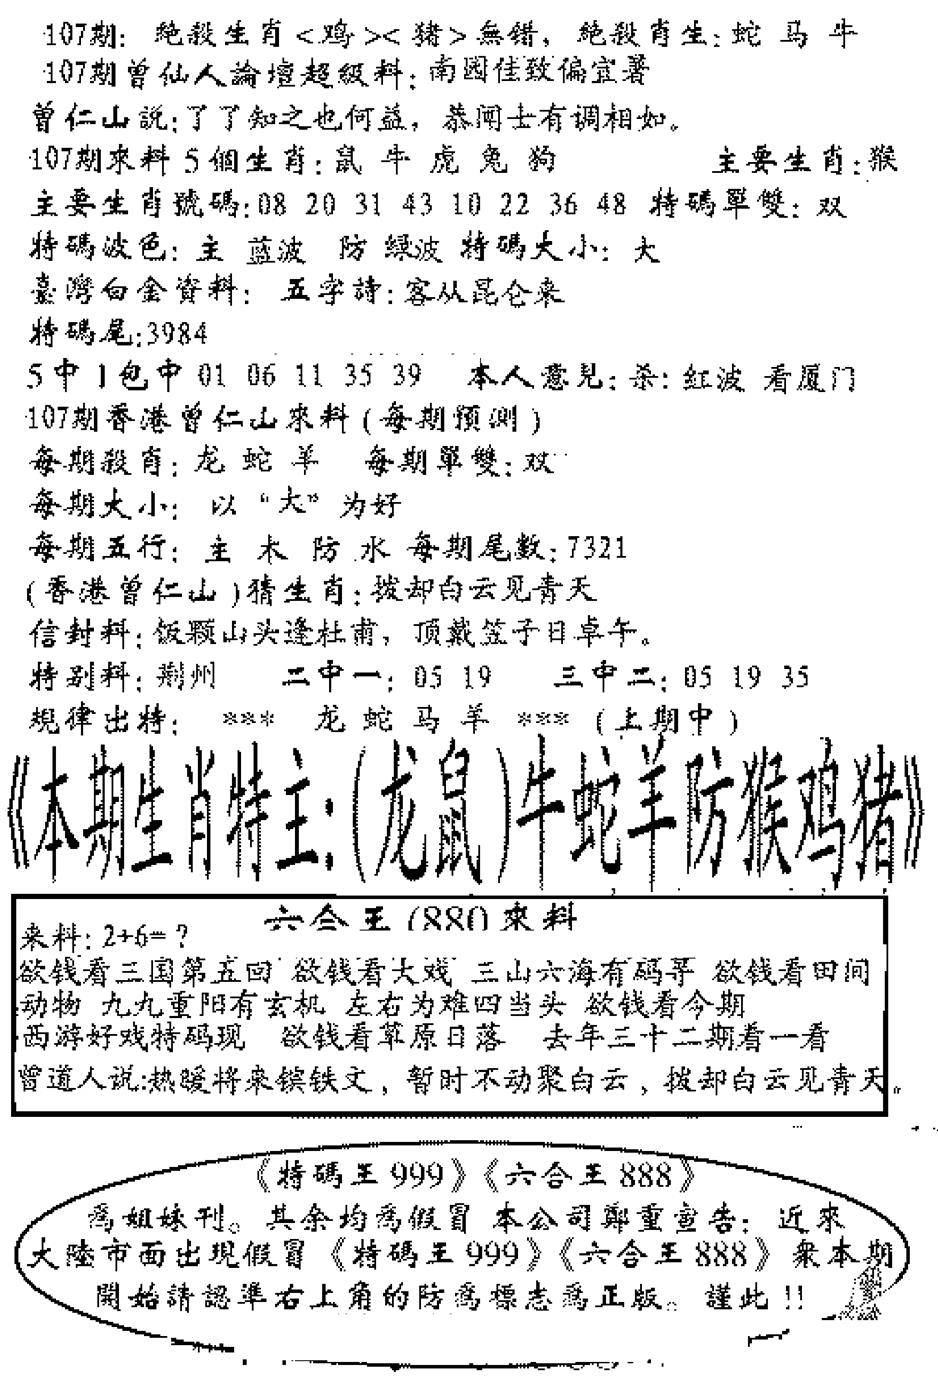 107期: 絶殺生肖<鸡><猪>無错, 絶殺肖生:蛇 马 牛
107期曾仙人論壇超級料:南國佳致偏宜署
曾仁山説:了了知之也何益, 恭闻士有调相如。
107期來料 5個生肖:鼠 牛 虎 兔 狗 主要生肖:猴
主要生肖號碼:08 20 31 43 10 22 36 48 特碼單雙: 双
特碼波色: 主 蓝波 防 绿波 特碼大小: 大
臺灣白金資料: 五字詩:客从昆仑来
特碼尾:3984
5中1包中 01 06 11 35 39 本人意見:杀:红波 看厦门
107期香港曾仁山來料(每期預測)
每期殺肖: 龙 蛇 羊 每期單雙:双
每期大小: 以“大”为好
每期五行: 主 木 防 水 每期尾數:7321
(香港曾仁山)猜生肖:拨却白云见青天
信封料:饭颗山头逢杜甫, 顶戴笠子日卓午。
特别料:荆州 二中一: 05 19 三中二: 05 19 35
規律出特: *** 龙 蛇 马 羊 *** (上期中)
《本期生肖特主:(龙鼠)牛蛇羊防猴鸡猪》
六合王(880)來料
来料: 2+6=?
欲钱看三国第五回 欲钱看大戏 三山六海有码寻 欲钱看田间
动物 九九重阳有玄机 左右为难四当头 欲钱看今期
西游好戏特码现 欲钱看草原日落 去年三十二期看一看
曾道人说:热暖将来镔铁文, 暂时不动聚白云, 拨却白云见青天。
《特碼王999》《六合王888》
爲姐妹刊。其余均爲假冒 本公司鄭重宣告: 近來
大陸市面出現假冒《特碼王999》《六合王888》衆本期
開始請認準右上角的防爲標志爲正版。謹此!!